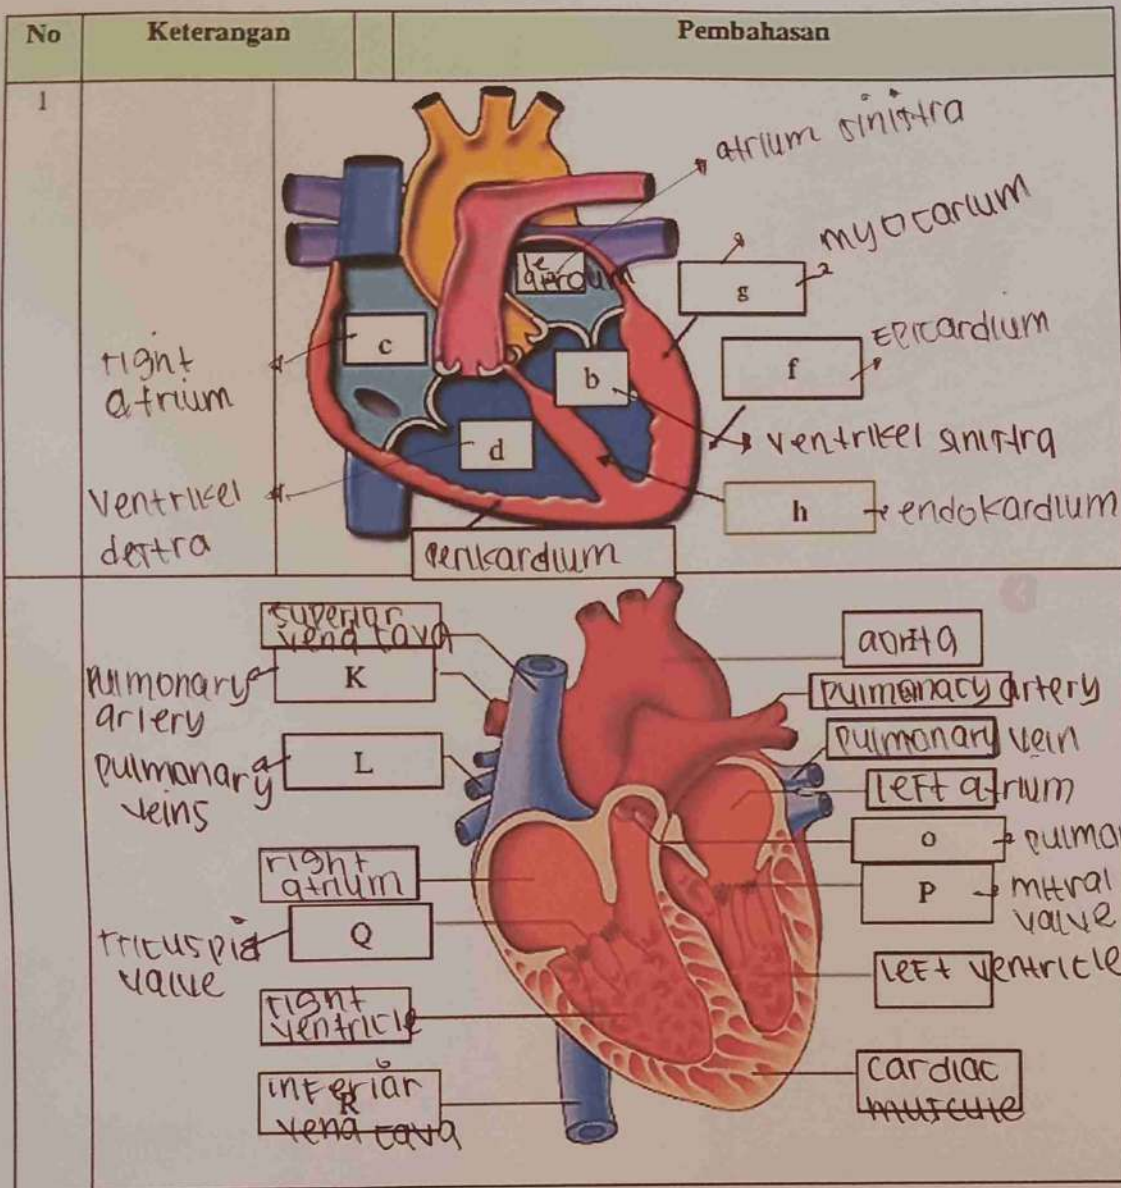 No Keterangan Pembahasan
1
atrium sinistra
myocarium
g
Epicardium
f
c
right
atrium
b
ventrikel sinistra
d
ventrikel
dextra
h
endokardium
perikardium
superior
vena cava
aorta
K
pulmonary
artery
pulmonary artery
pulmonary vein
L
pulmonary
veins
left atrium
O
pulmo
right
atrium
P
mitral
valve
Q
tricuspid
valve
left ventricle
right
ventricle
cardiac
muscule
inferior
R
vena cava